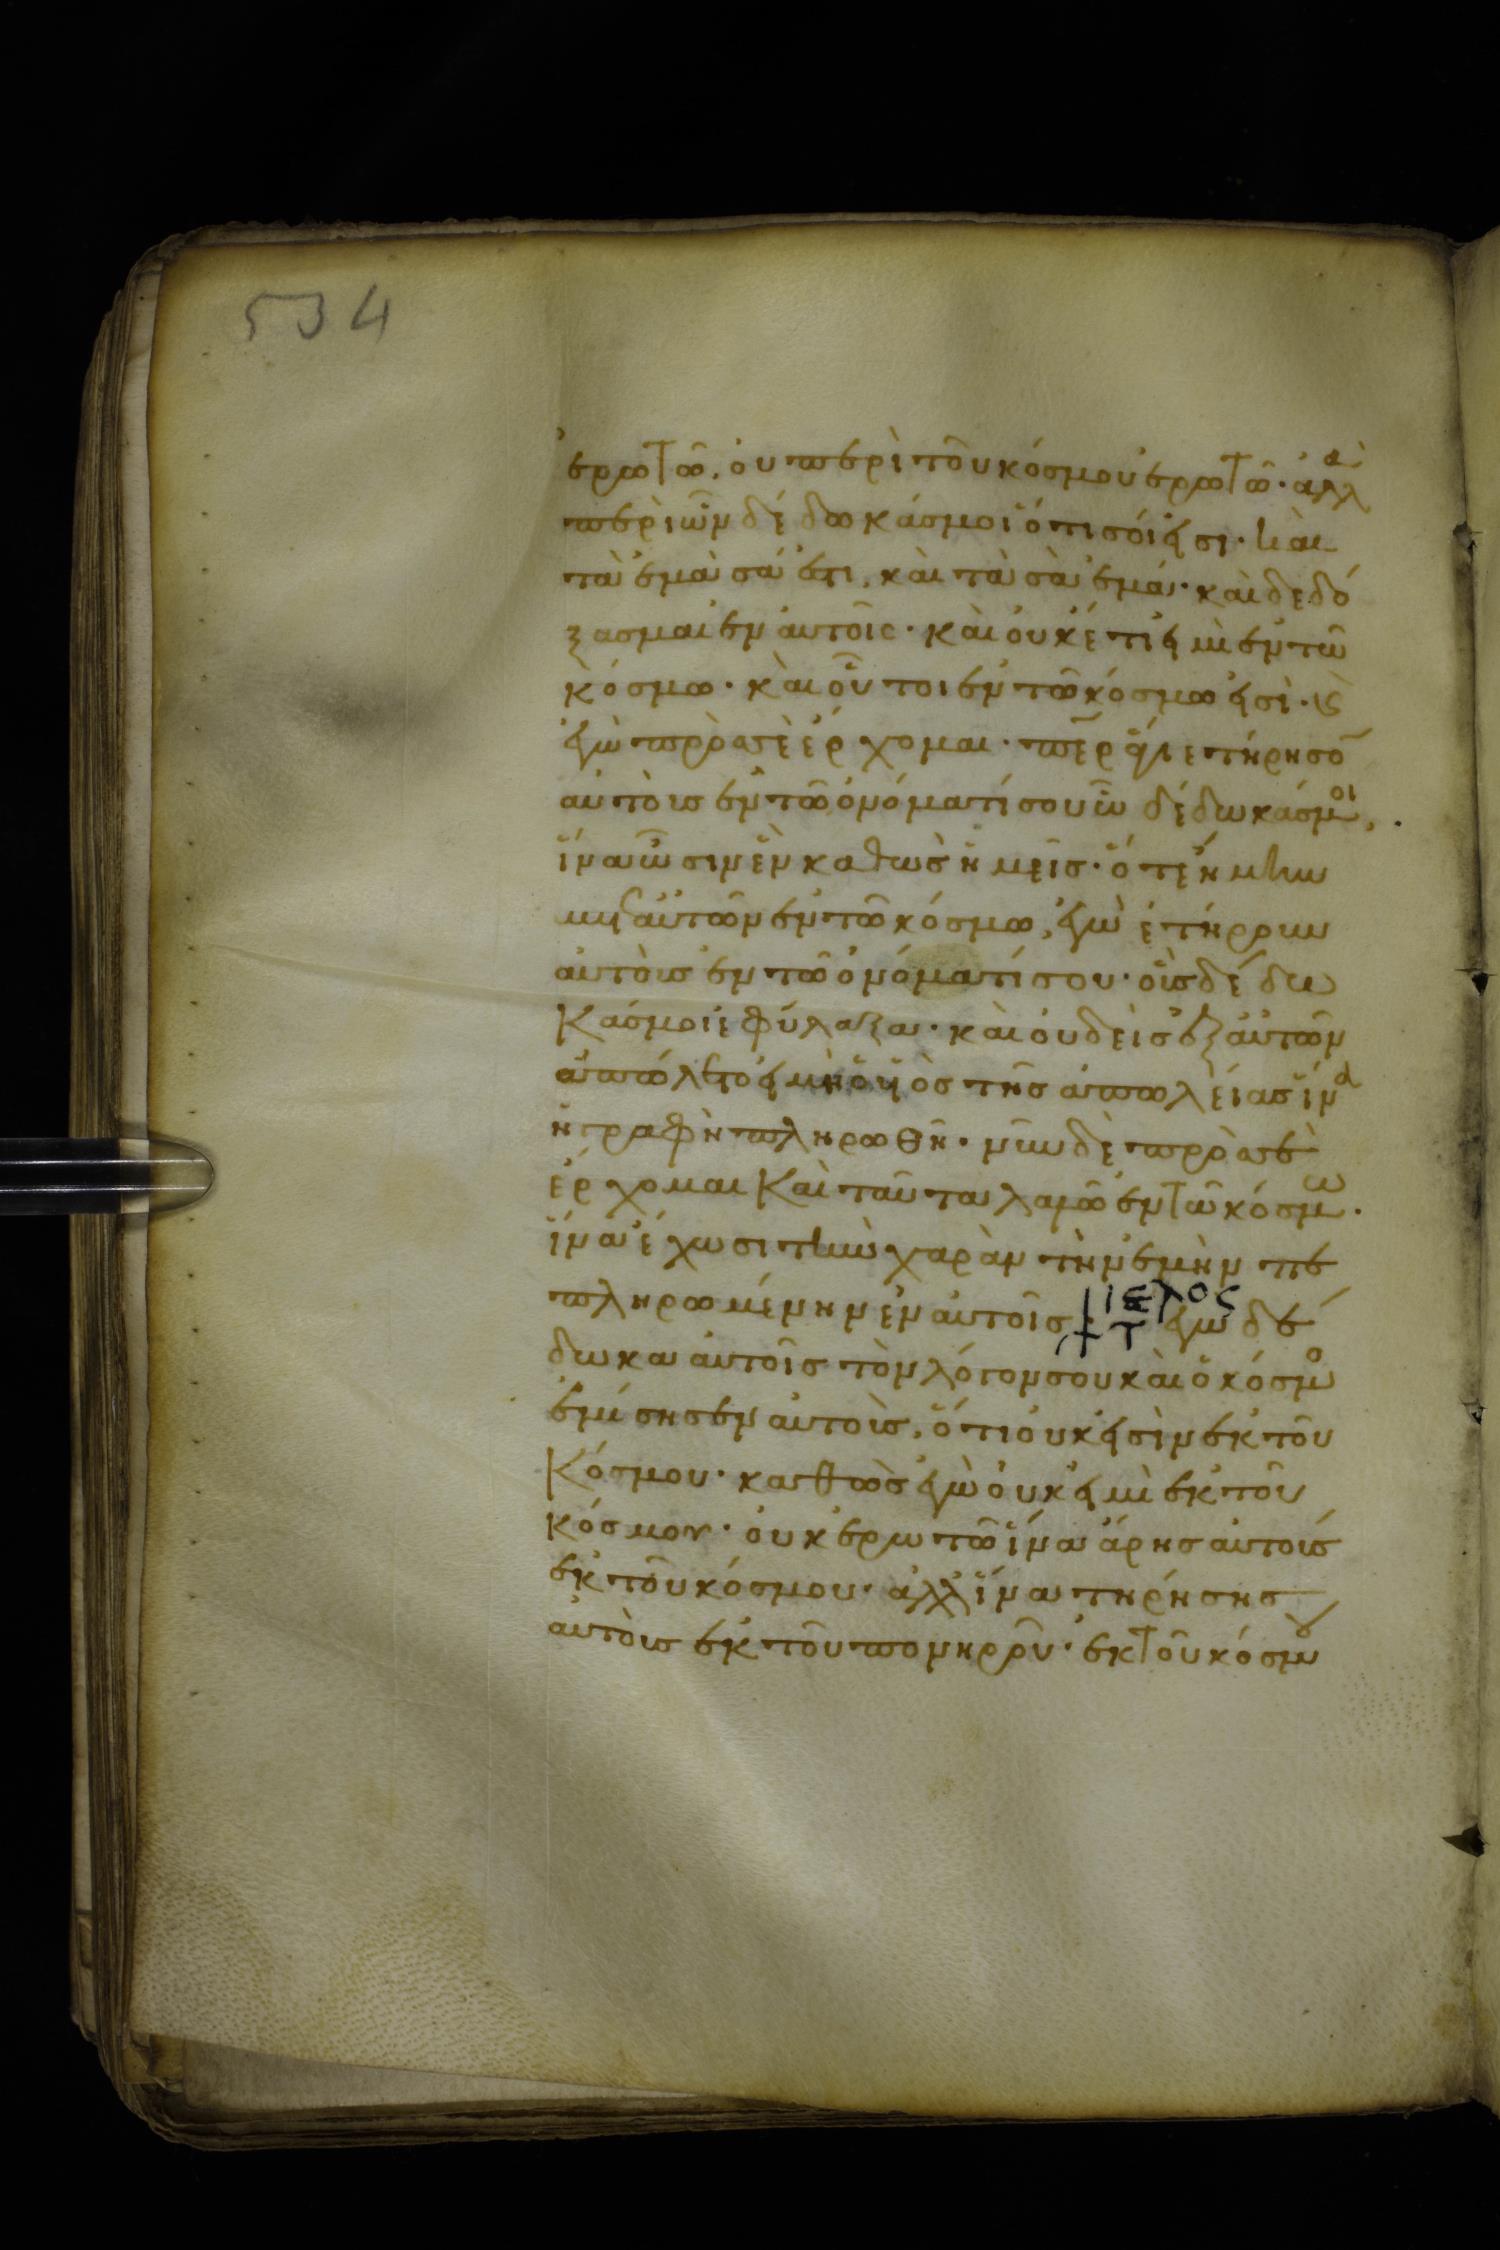 534
ἐρωτῶ, ὀυ περὶ τοῦ κόσμου ἐρωτῶ· ἀλλὰ
περὶ ὧν δέδωκάσ μοι ὅτι σόι εἰσι· καὶ
τὰ ἐμὰ σά ἐστι, καὶ τὰ σὰ ἐμά· καὶ δεδό
ξασμαι ἐν ἀυτοῖς· καὶ ὀυκέτι εἰμὶ ἐν τῶ
κόσμω· καὶ οὗτοι ἐν τῶ κόσμω εἰσὶ· κ(αὶ)
ἐγὼ πρὸσ σὲ ἔρχομαι· περ ἅγιε τήρησο̄
αὐτὸυσ ἐν τῶ ὀνόματί σου ὧ δέδωκάσ μοι,
ἵνα ὦσιν ἓν καθὼσ ἡμεῖσ· ὅτε ἤμην
μετ αὐτῶν ἐν τῶ κόσμω, ἐγὼ ἐτήρουν
αὐτὸυσ ἐν τῶ ὀνόματί σου· οὓσ δέδω
κάσ μοι ἐφύλαξα· καὶ ὀυδεὶσ ἐξ ἀυτῶν
ἀπώλετο εἰ μὴ ὁ ὑιὸσ τῆσ ἀπωλείασ ἵνα
ἡ γραφὴ πληρωθῆ· νῦν δὲ πρὸσ σὲ
ἔρχομαι καὶ ταῦτα λαλῶ ἐν τῶ κόσμω·
ἵνα ἔχωσι τὴν χαρὰν τὴν ἐμὴν πε
πληρωμένην ἐν αὐτοῖσ· τέλος ἐγὼ δέ
δωκα ἀυτοῖσ τὸν λόγον σου καὶ ὁ κόσμο
ἐμίσησεν ἀυτοὺσ, ὅτι ὀυκ εἰσὶν ἐκ τοῦ
κόσμου· καθὼσ ἐγὼ ὀυκ εἰμὶ ἐκ τοῦ
κόσμου· ὀυκ ἐρωτῶ ἵνα ἄρησ ἀυτοὺσ
ἐκ τοῦ κόσμου· ἀλλ ἵνα τηρήσησ
ἀυτὸυσ ἐκ τοῦ πονηροῦ· ἐκ τοῦ κόσμου